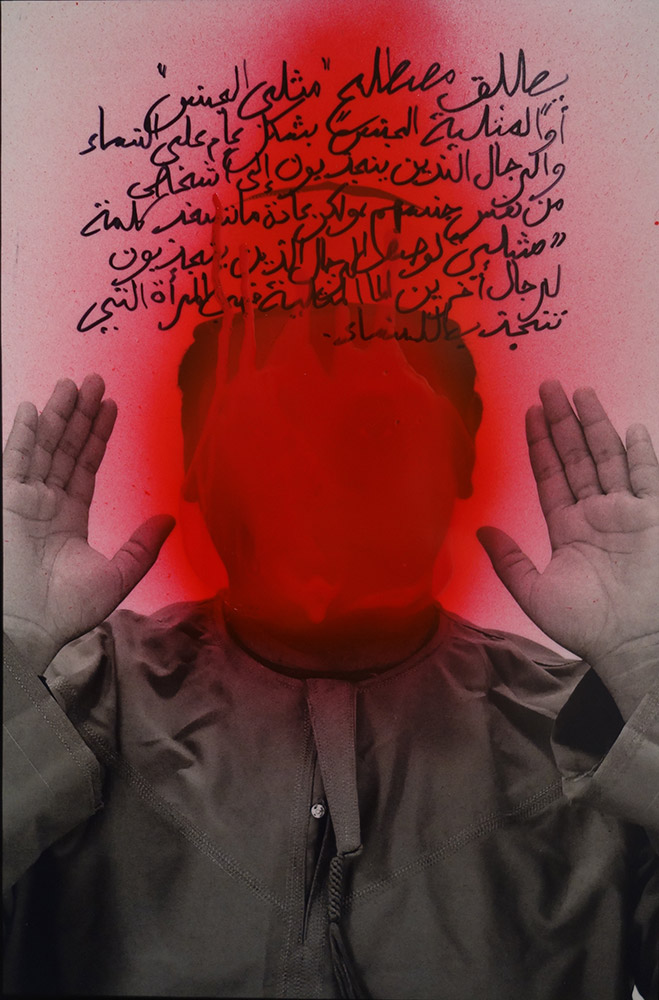 يطلق مصطلح "مثلي الجنس"
أو "المثلية الجنس" بشكل عام على النساء
والرجال الذين ينجذبون إلى أشخاص
من نفس جنسهم ولكن عادة ما كلمة
"مثلي" لوصف الرجال الذين ينجذبون
لرجال آخرين اما المثلية فهي المرأة التي
تنجذب للنساء.